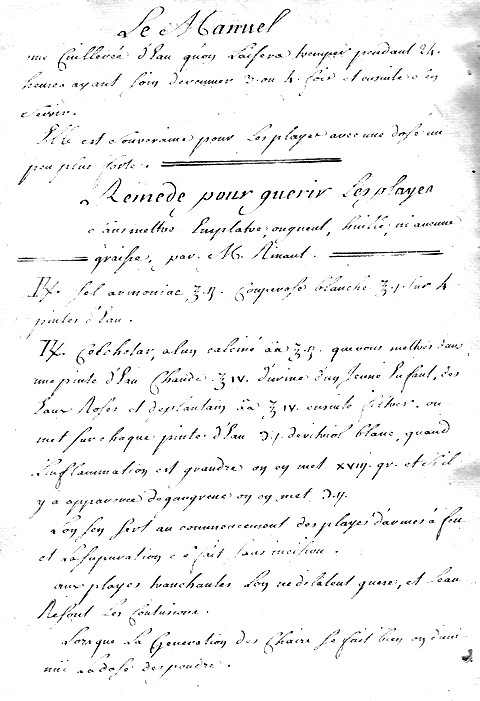 Le Manuel
une Cuillerée d'Eau qu'on Laissera tremper pendant 24.
heures ayant soin de remuer 3 ou 4. fois et ensuite s'en
Servir.
Elle est Souveraine pour Les playes avec une dose un
peu plus forte.
Remede pour guerir Les playes
sans mettre Emplatre, onguent, huille, ni aucune
graisse, par M. Rinaut.
℞. Sel armoniac ʒ.ij. Couperose blanche ʒ.j. sur 4
pintes d'Eau.
℞. Colchotar, alun calciné āā ʒ.ij. que vous mettrés dans
une pinte d'Eau Chaude ℥ IV. d'urine d'un Jeune Enfant, des
Eaux Roses et de plantain āā ℥ IV. ensuite filtrer, on
met sur chaque pinte d'Eau ℈.j. de vitriol blanc, quand
L'inflammation est grandre on en met xviij. gr. et s'il
y a apparence de gangrene on en met ℈.ij.
L'on s'en sert au commencement des playes d'armes à feu
et La Supuration se fait sans incision.
aux playes tranchantes L'on ne dilatent guere, et L'eau
Resout Les Contusions.
Lorsque La Generation des Chairs se fait bien on dimi-
nue La dose des poudre.